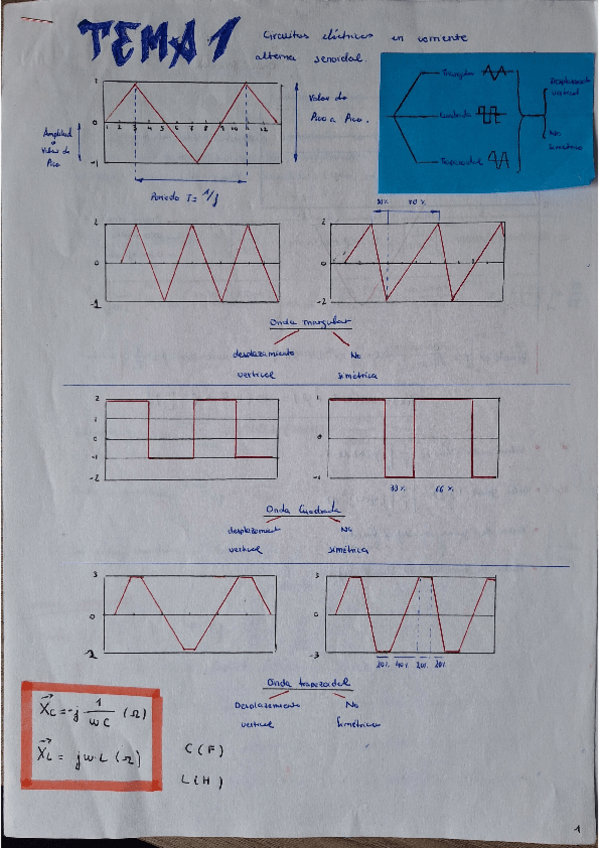 TEMA 1
Circuitos eléctricos en corriente
alterna senoidal.
Triangular
Cuadrada
Trapezoidal
Desplazamiento
vertical
No
Simétrica
1
0
-1
1 2 3 4 5 6 7 8 9 10 11 12
Amplitud
o
Valor de
Pico
Valor de
Pico a Pico.
Periodo T = 1/f
2
0
-1
2
0
-2
20% 80%
Onda triangular
desplazamiento
vertical
No
simétrica
2
1
0
-1
-2
1
0
-1
33% 66%
Onda Cuadrada
desplazamiento
vertical
No
simétrica
3
0
-2
3
0
-3
20% 40% 20% 20%
Onda trapezoidal
Desplazamiento
vertical
No
Simétrica
XC = -j 1/ωC (Ω)
XL = jω·L (Ω)
C (F)
L (H)
1